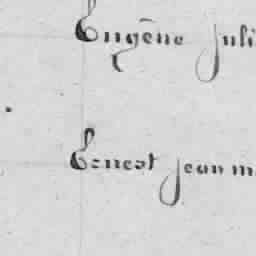 Eugène Juli
Ernest Jean m